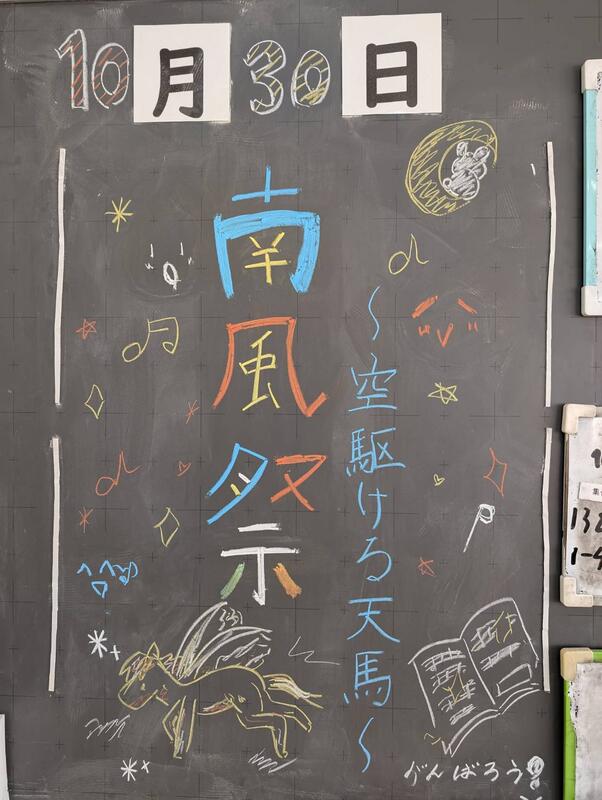 10月30日
南風祭
〜空駆ける天馬〜
がんばろう!